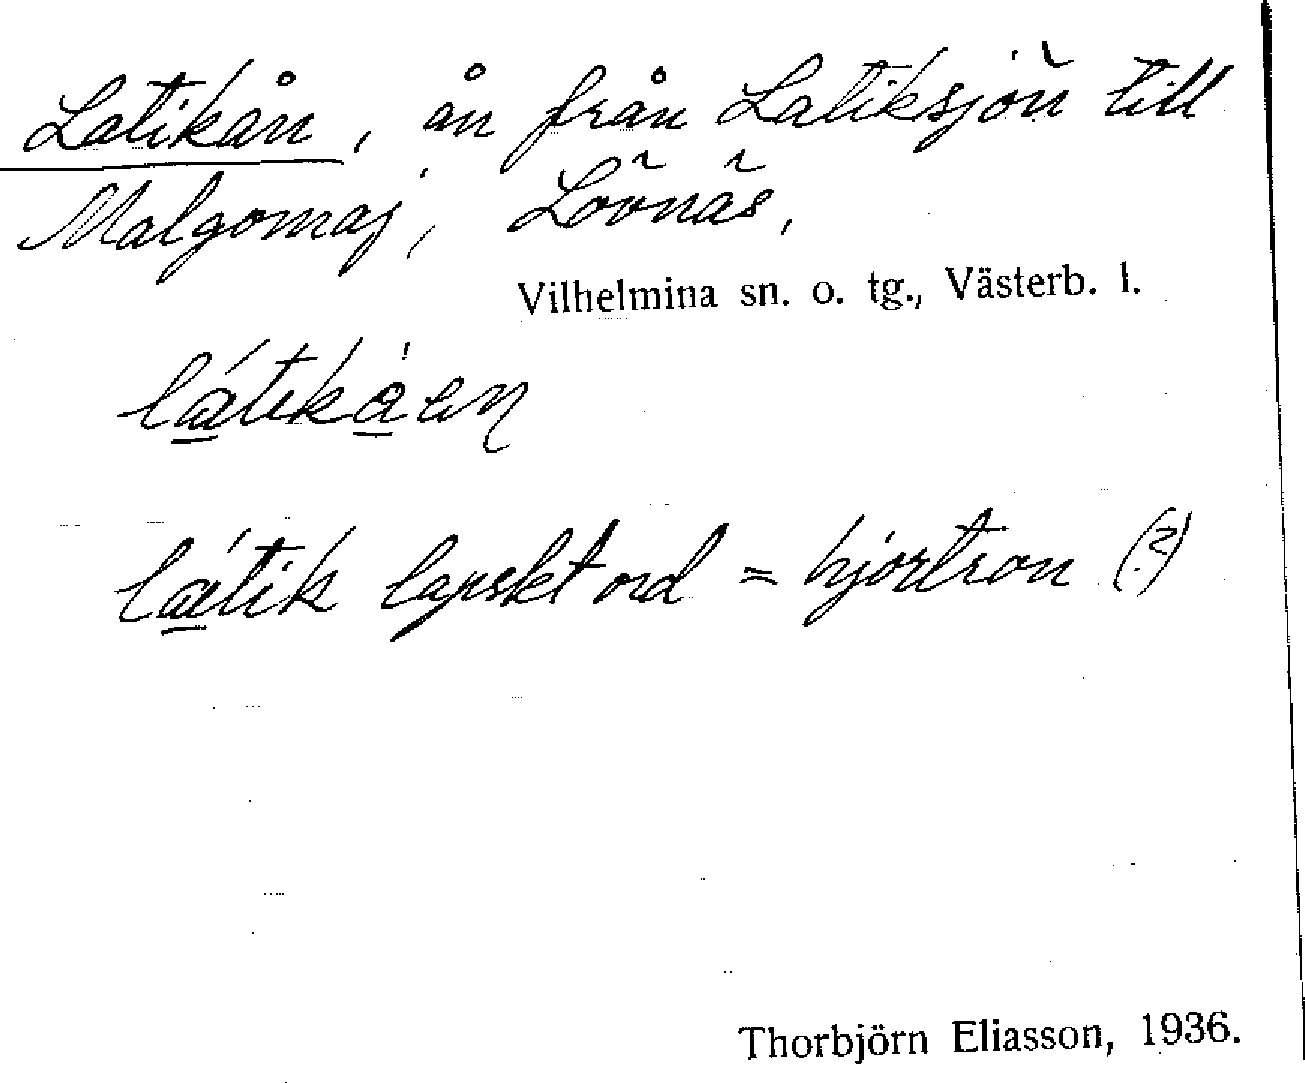 Latikån, ån från Latiksjön till
Malgomaj, Lövnäs,
Vilhelmina sn. o. tg., Västerb. l.
látik lapskt ord = hjortron (?)
Thorbjörn Eliasson, 1936.